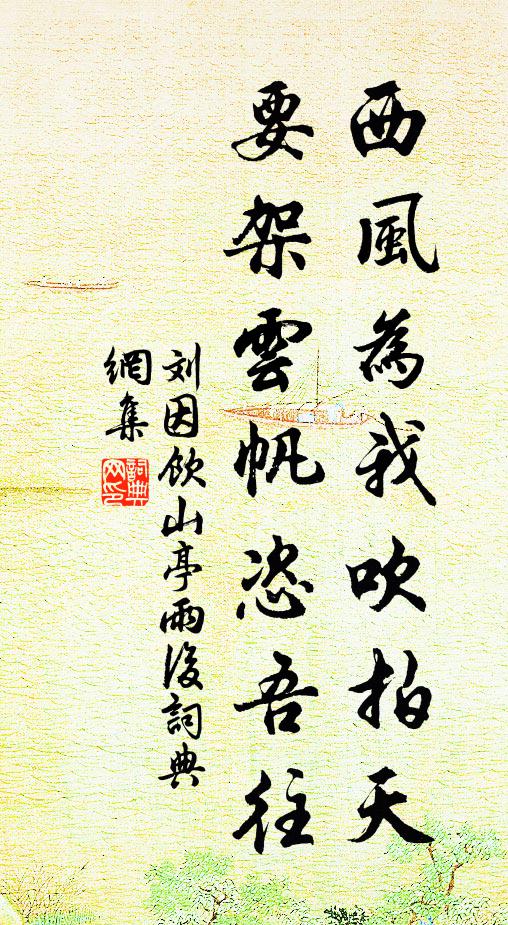 西風為我吹拍天
要架雲帆恣吾往
刘因飲山亭雨後詞典
網集
詞典
网印